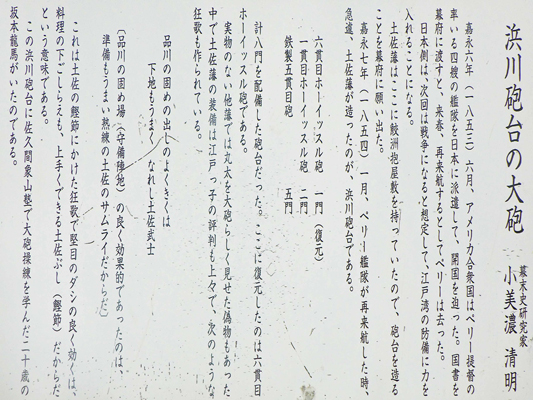 浜川砲台の大砲
幕末史研究家
小美濃 清明
嘉永六年(一八五三)六月、アメリカ合衆国はペリー提督の
率いる四艘の艦隊を日本に派遣して、開国を迫った。国書を
幕府に渡すと、来春、再来航するとしてペリーは去った。
日本側は、次回は戦争になると想定して、江戸湾の防備に力を
入れることになる。
土佐藩はここに鮫洲抱屋敷を持っていたので、砲台を造る
ことを幕府に願い出た。
嘉永七年(一八五四)一月、ペリー艦隊が再来航した時、
急遽、土佐藩が造ったのが、浜川砲台である。
六貫目ホーイッスル砲 一門(復元)
一貫目ホーイッスル砲 二門
鉄製五貫目砲 五門
計八門を配備した砲台だった。ここに復元したのは六貫目
ホーイッスル砲である。
実物のない他藩では丸太を大砲らしく見せた偽物もあった
中で土佐藩の装備は江戸っ子の評判も上々で、次のような
狂歌も作られている。
品川の固めの出しのよくきくは
下地もうまくなれし土佐武士
(品川の固め場(守備陣地)の良く効果的であったのは、
準備もうまい熟練の土佐のサムライだからだ)
これは土佐の鰹節にかけた狂歌で堅目のダシの良く効くは、
料理の下ごしらえも、上手くできる土佐ぶし(鰹節)だからだ
という意味である。
この浜川砲台に佐久間象山塾で大砲操練を学んだ二十歳の
坂本龍馬がいたのである。